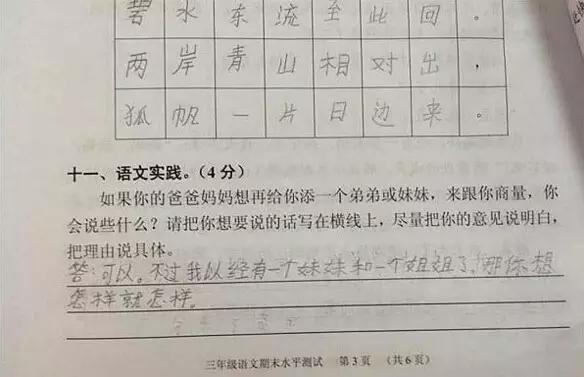 碧水东流至此回。
两岸青山相对出，
狐帆一片日边来。
十一、语文实践。（4分）
如果你的爸爸妈妈想再给你添一个弟弟或妹妹，来跟你商量，你
会说些什么？请把你想要说的话写在横线上，尽量把你的意见说明白，
把理由说具体。
答：可以。不过我以经有一个妹妹和一个姐姐了，那你想
怎样就怎样。
三年级语文期末水平测试 第3页 （共6页）